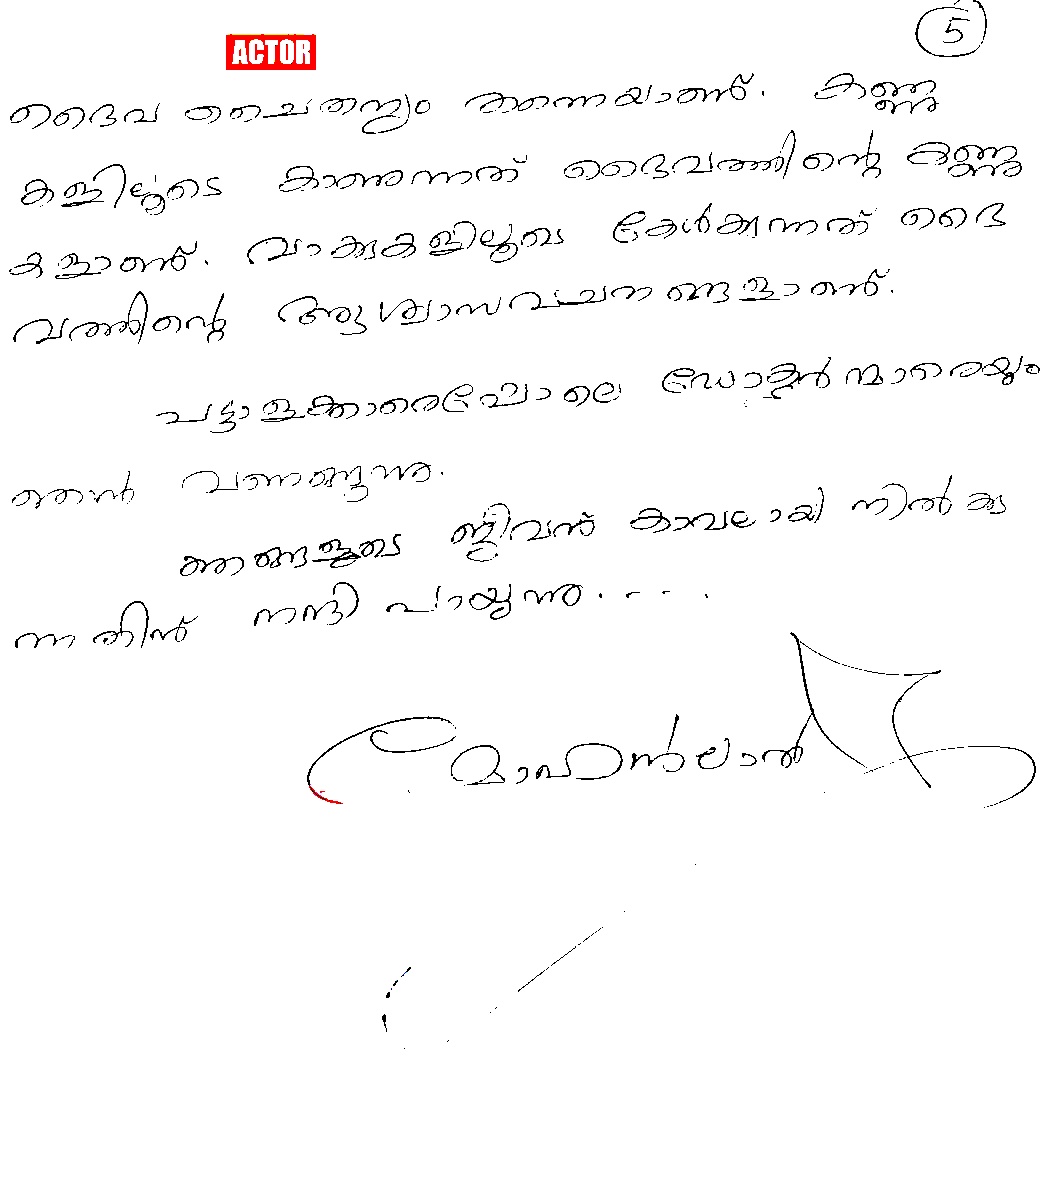 5
ACTOR
ദൈവ ചൈതന്യം തന്നെയാണ്. കണ്ണു
കളിലൂടെ കാണുന്നത് ദൈവത്തിന്റെ കണ്ണു
കളാണ്. വാക്കുകളിലൂടെ കേൾക്കുന്നത് ദൈ
വത്തിന്റെ ആശ്വാസവചനങ്ങളാണ്.
പട്ടാളക്കാരെപ്പോലെ ഡോക്ടർമാരെയും
ഞാൻ വണങ്ങുന്നു.
ഞങ്ങളുടെ ജീവന് കാവലായി നിൽക്കു
ന്നതിന് നന്ദി പറയുന്നു.....
മോഹൻലാൽ